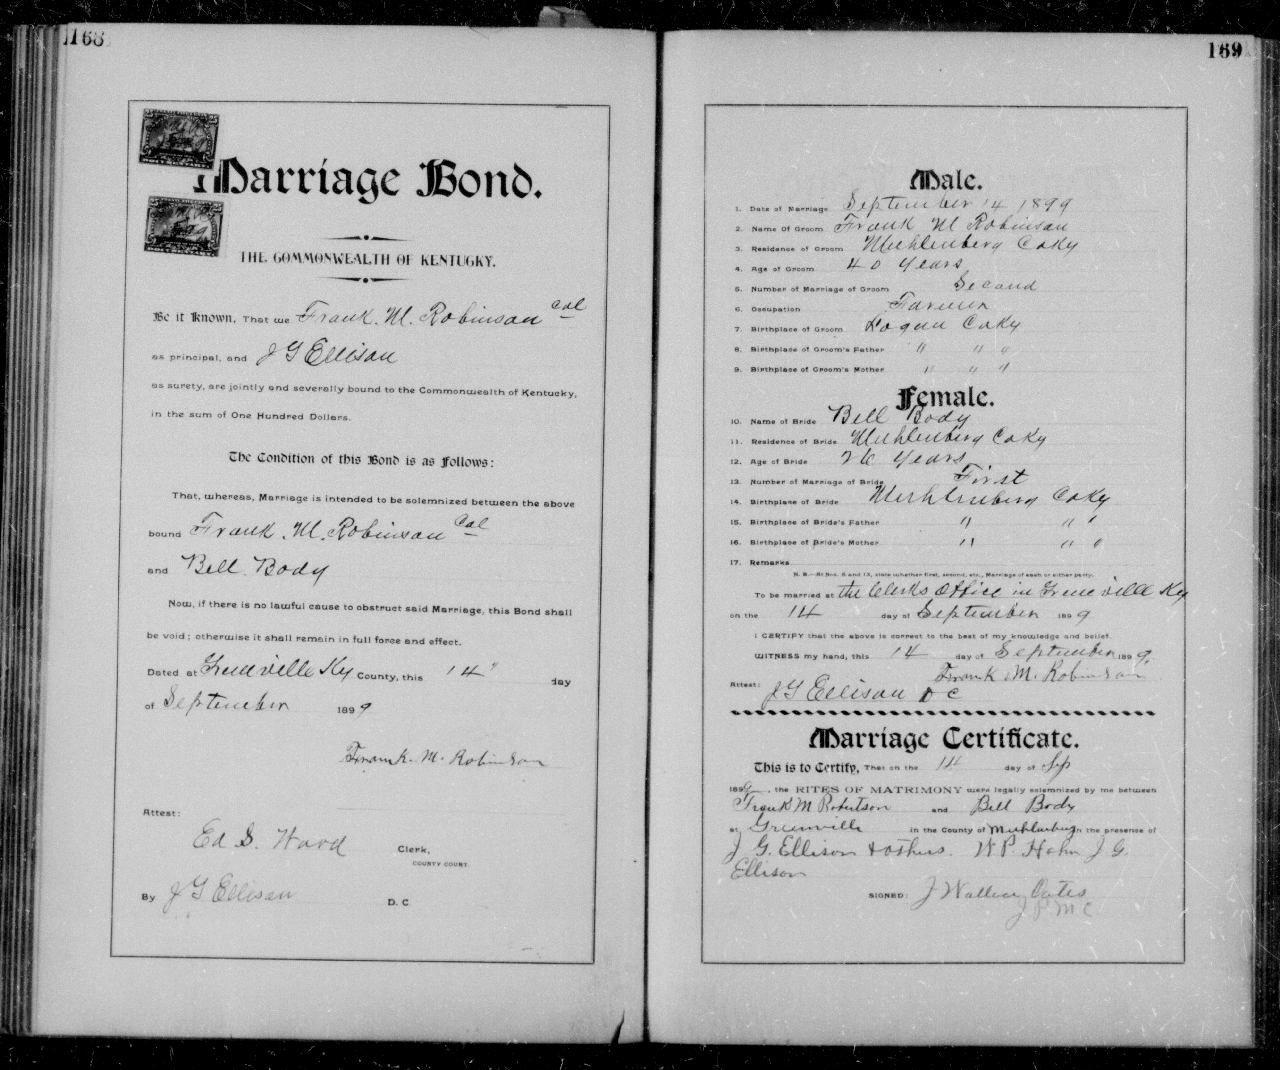 168
Marriage Bond.
THE COMMONWEALTH OF KENTUCKY.
Be it Known, That we Frank. M. Robinson Col
as principal, and J G Ellison
as surety, are jointly and severally bound to the Commonwealth of Kentucky,
in the sum of One Hundred Dollars.
The Condition of this Bond is as Follows:
That, whereas, Marriage is intended to be solemnized between the above
bound Frank. M. Robinson Col
and Bell Body
Now, if there is no lawful cause to obstruct said Marriage, this Bond shall
be void; otherwise it shall remain in full force and effect.
Dated at Greenville Ky County, this 14" day
of September 1899
Frank. M. Robinson
Attest:
Ed S. Wood Clerk,
COUNTY COURT.
By J G Ellison D. C
169
Male.
1. Date of Marriage September 14 1899
2. Name Of Groom Frank M Robinson
3. Residence of Groom Muhlenberg Co Ky
4. Age of Groom 40 Years
5. Number of Marriage of Groom Second
6. Occupation Farmer
7. Birthplace of Groom Logan Co Ky
8. Birthplace of Groom's Father " " "
9. Birthplace of Groom's Mother " " "
Female.
10. Name of Bride Bell Body
11. Residence of Bride Muhlenberg Co Ky
12. Age of Bride 26 Years
13. Number of Marriage of Bride First
14. Birthplace of Bride Muhlenberg Co Ky
15. Birthplace of Bride's Father " " "
16. Birthplace of Bride's Mother " " "
17. Remarks
N. B.—At Nos. 5 and 13, state whether first, second, etc., Marriage of each or either party.
To be married at the Clerks Office in Greenville Ky
on the 14 day of September 1899
I CERTIFY that the above is correct to the best of my knowledge and belief.
WITNESS my hand, this 14 day of September 1899.
Frank M. Robinson
Attest: J G Ellison D C
Marriage Certificate.
This is to Certify, That on the 14 day of Sep
1899, the RITES OF MATRIMONY were legally solemnized by me between
Frank M Robertson and Bell Body
at Greenville in the County of Muhlenburg in the presence of
J. G. Ellison & others. W P. Hahn J G.
Ellison
SIGNED: J Wallace Oates
J P M C